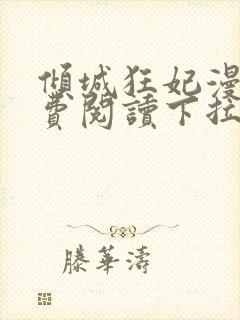 傾城狂妃漫
費閱讀下拉
滕華濤